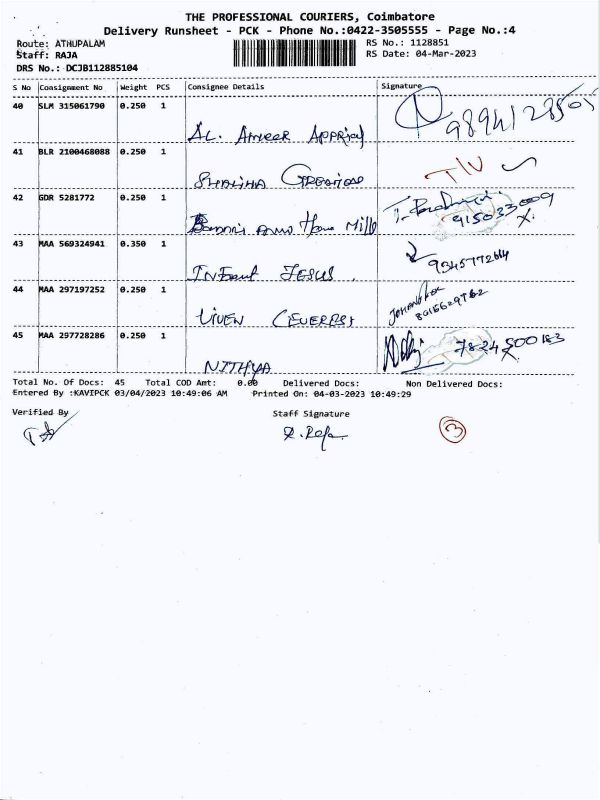 THE PROFESSIONAL COURIERS, Coimbatore
Delivery Runsheet - PCK - Phone No.:0422-3505555 - Page No.:4
Route: ATHUPALAM
RS No.: 1128851
Staff: RAJA
RS Date: 04-Mar-2023
DRS No.: DCJB112885104
S No Consignment No Weight PCS Consignee Details Signature
40 SLM 315061790 0.250 1
AL. Ameer
41 BLR 2100468088 0.250 1
T/V
42 GDR 5281772 0.250 1
9150233009
43 MAA 569324941 0.350 1
Infant Jesus
9345772614
44 MAA 297197252 0.250 1
45 MAA 297728286 0.250 1
7824500183
NITHYA
Total No. Of Docs: 45 Total COD Amt: 0.00 Delivered Docs: Non Delivered Docs:
Entered By :KAVIPCK 03/04/2023 10:49:06 AM Printed On: 04-03-2023 10:49:29
Verified By Staff Signature
R. Raja
3